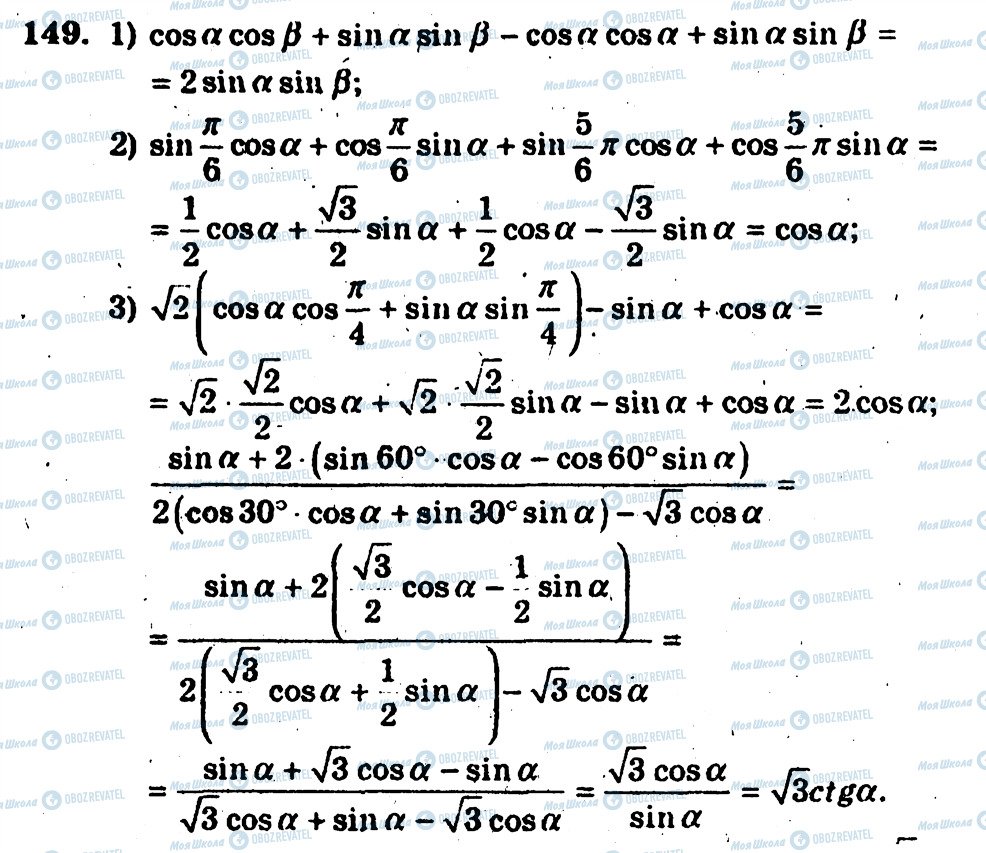 149. 1) cos α cos β + sin α sin β – cos α cos α + sin α sin β =
= 2 sin α sin β;
2) sin π/6 cos α + cos π/6 sin α + sin 5/6 π cos α + cos 5/6 π sin α =
= 1/2 cos α + √3/2 sin α + 1/2 cos α – √3/2 sin α = cos α;
3) √2 (cos α cos π/4 + sin α sin π/4) – sin α + cos α =
= √2 · √2/2 cos α + √2 · √2/2 sin α – sin α + cos α = 2 cos α;
(sin α + 2 · (sin 60° · cos α – cos 60° sin α)) / (2 (cos 30° · cos α + sin 30° sin α) – √3 cos α) =
= (sin α + 2 (√3/2 cos α – 1/2 sin α)) / (2 (√3/2 cos α + 1/2 sin α) – √3 cos α) =
= (sin α + √3 cos α – sin α) / (√3 cos α + sin α – √3 cos α) = √3 cos α / sin α = √3 ctg α.
Моя Школа OBOZREVATEL